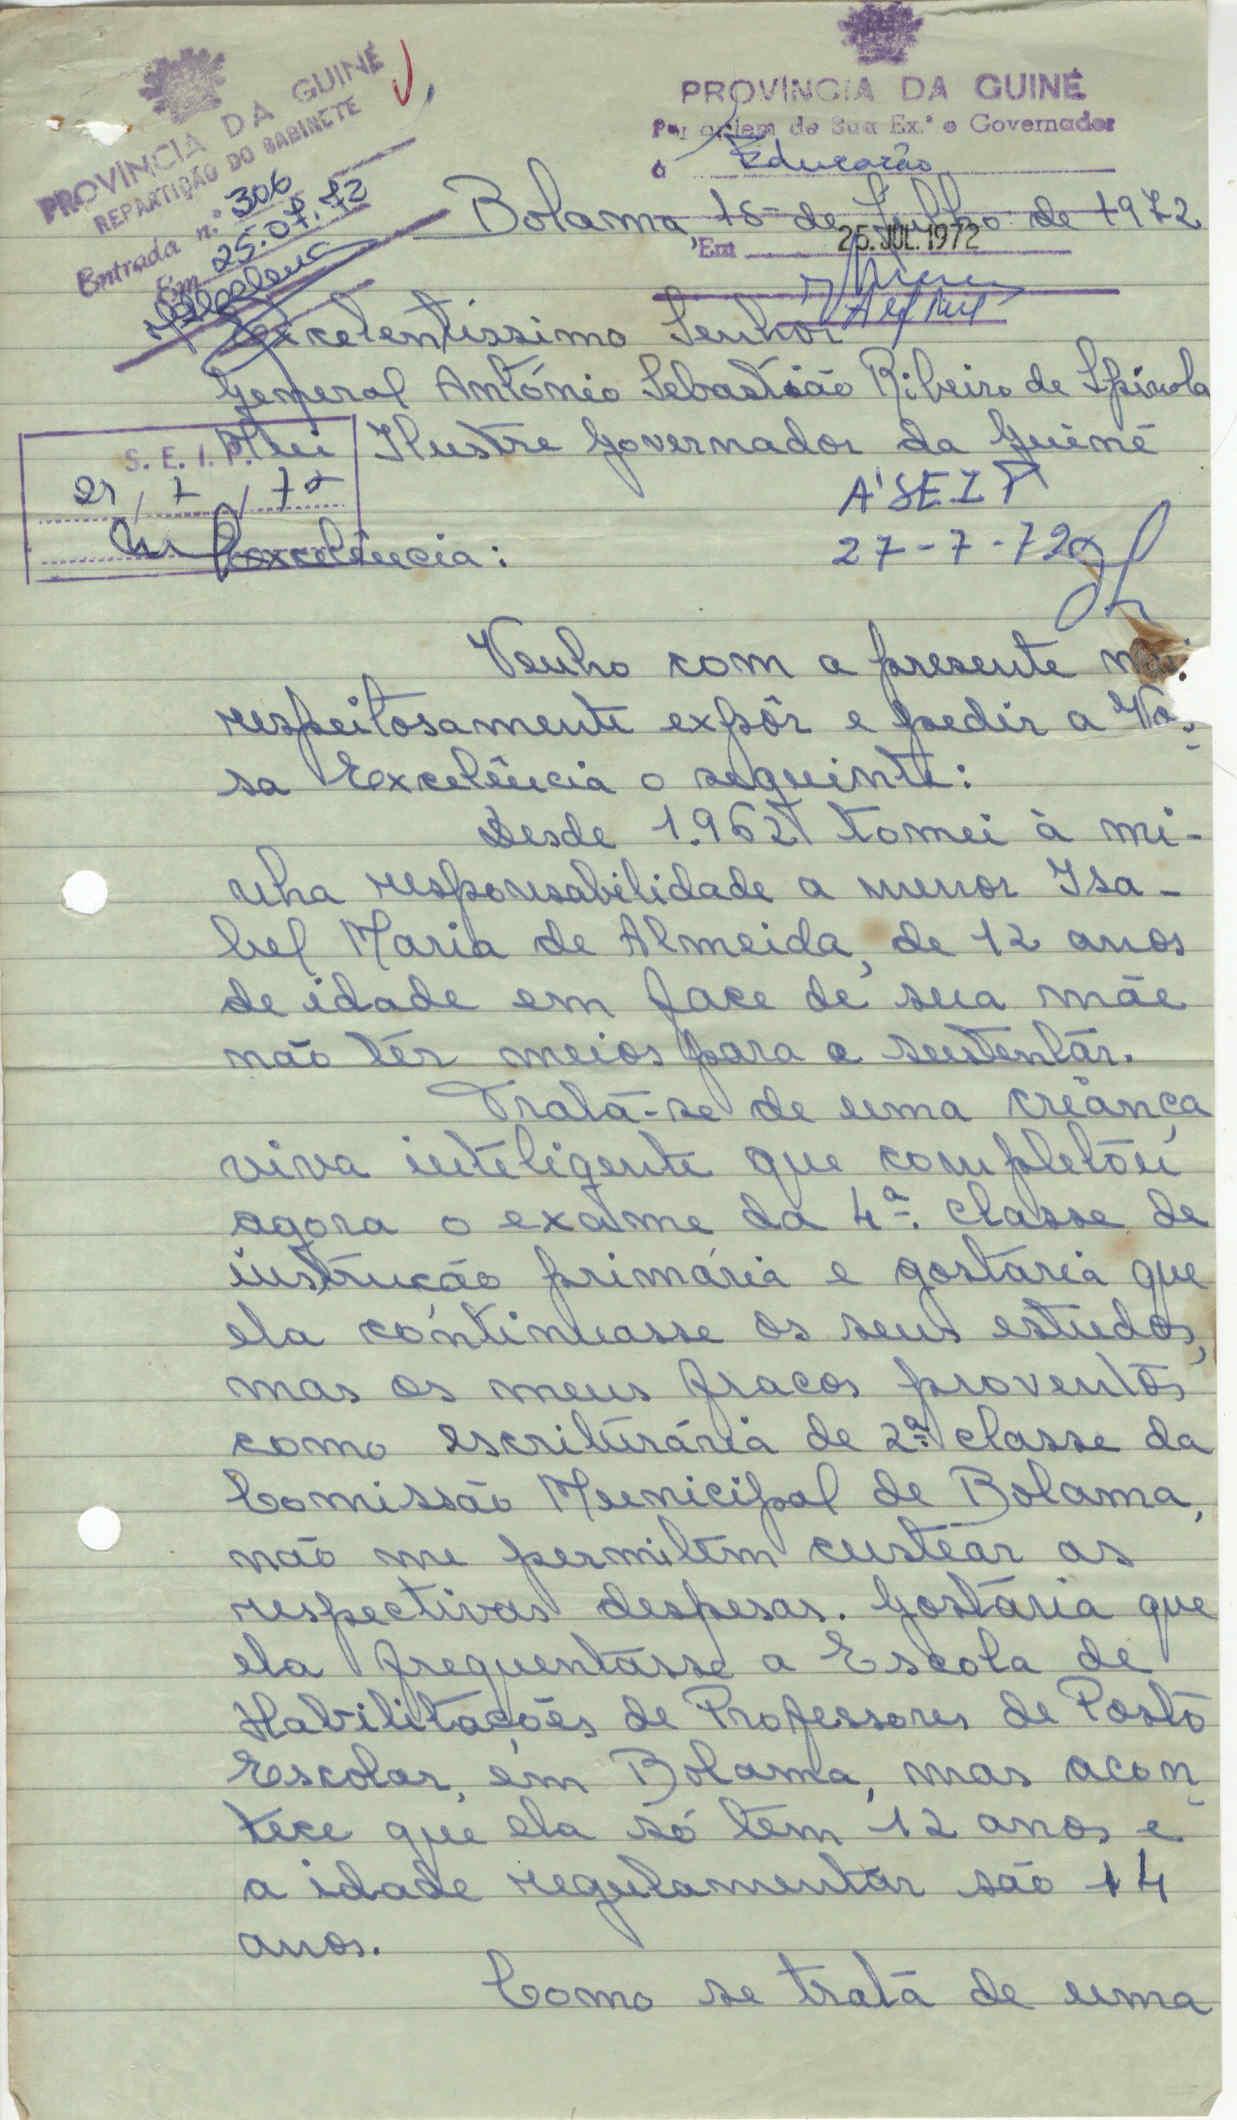 PROVÍNCIA DA GUINÉ
REPARTIÇÃO DO GABINETE
Entrada n.º 306
Em 25.07.72
PROVÍNCIA DA GUINÉ
Por ordem de Sua Ex.ª o Governador
à Educação
Bolama, 18 de Julho de 1972
Em 25. JUL. 1972
Excelentíssimo Senhor
General António Sebastião Ribeiro de Spínola
Mui Ilustre Governador da Guiné
S. E. I. P.
27 / 7 / 72
À SEIP
27-7-72
Excelência:
Venho com a presente mui
respeitosamente expôr e pedir a Vos-
sa Excelência o seguinte:
Desde 1.962 tomei à mi-
nha responsabilidade a menor Isa-
bel Maria de Almeida, de 12 anos
de idade em face de sua mãe
não têr meios para a sustentár.
Tratá-se de uma criança
viva inteligente que completou
agora o exame da 4ª. classe de
instrução primária e gostária que
ela continuasse os seus estudos,
mas os meus fracos proventos
como escriturária de 2ª. classe da
Comissão Municipal de Bolama,
não me permitem custeár as
respectivas despesas. Gostária que
ela frequentasse a Escola de
Habilitações de Professores de Posto
Escolar, em Bolama, mas acon-
tece que ela só tem 12 anos e
a idade regulamentar são 14
anos.
Como se tratá de uma